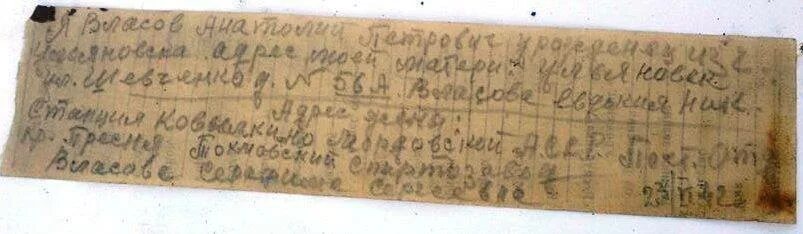 Я Власов Анатолий Петрович урожденец из г.
Ульяновска адрес моей матери: Ульяновск
ул. Шевченко д. № 56А Власова Евдокия Ник.
Адрес жены:
Станция Ковылкино Мордовской АССР Почт. Отд
Кр. Пресня Токмовский Спиртозавод
Власова Серафима Сергеевна
42